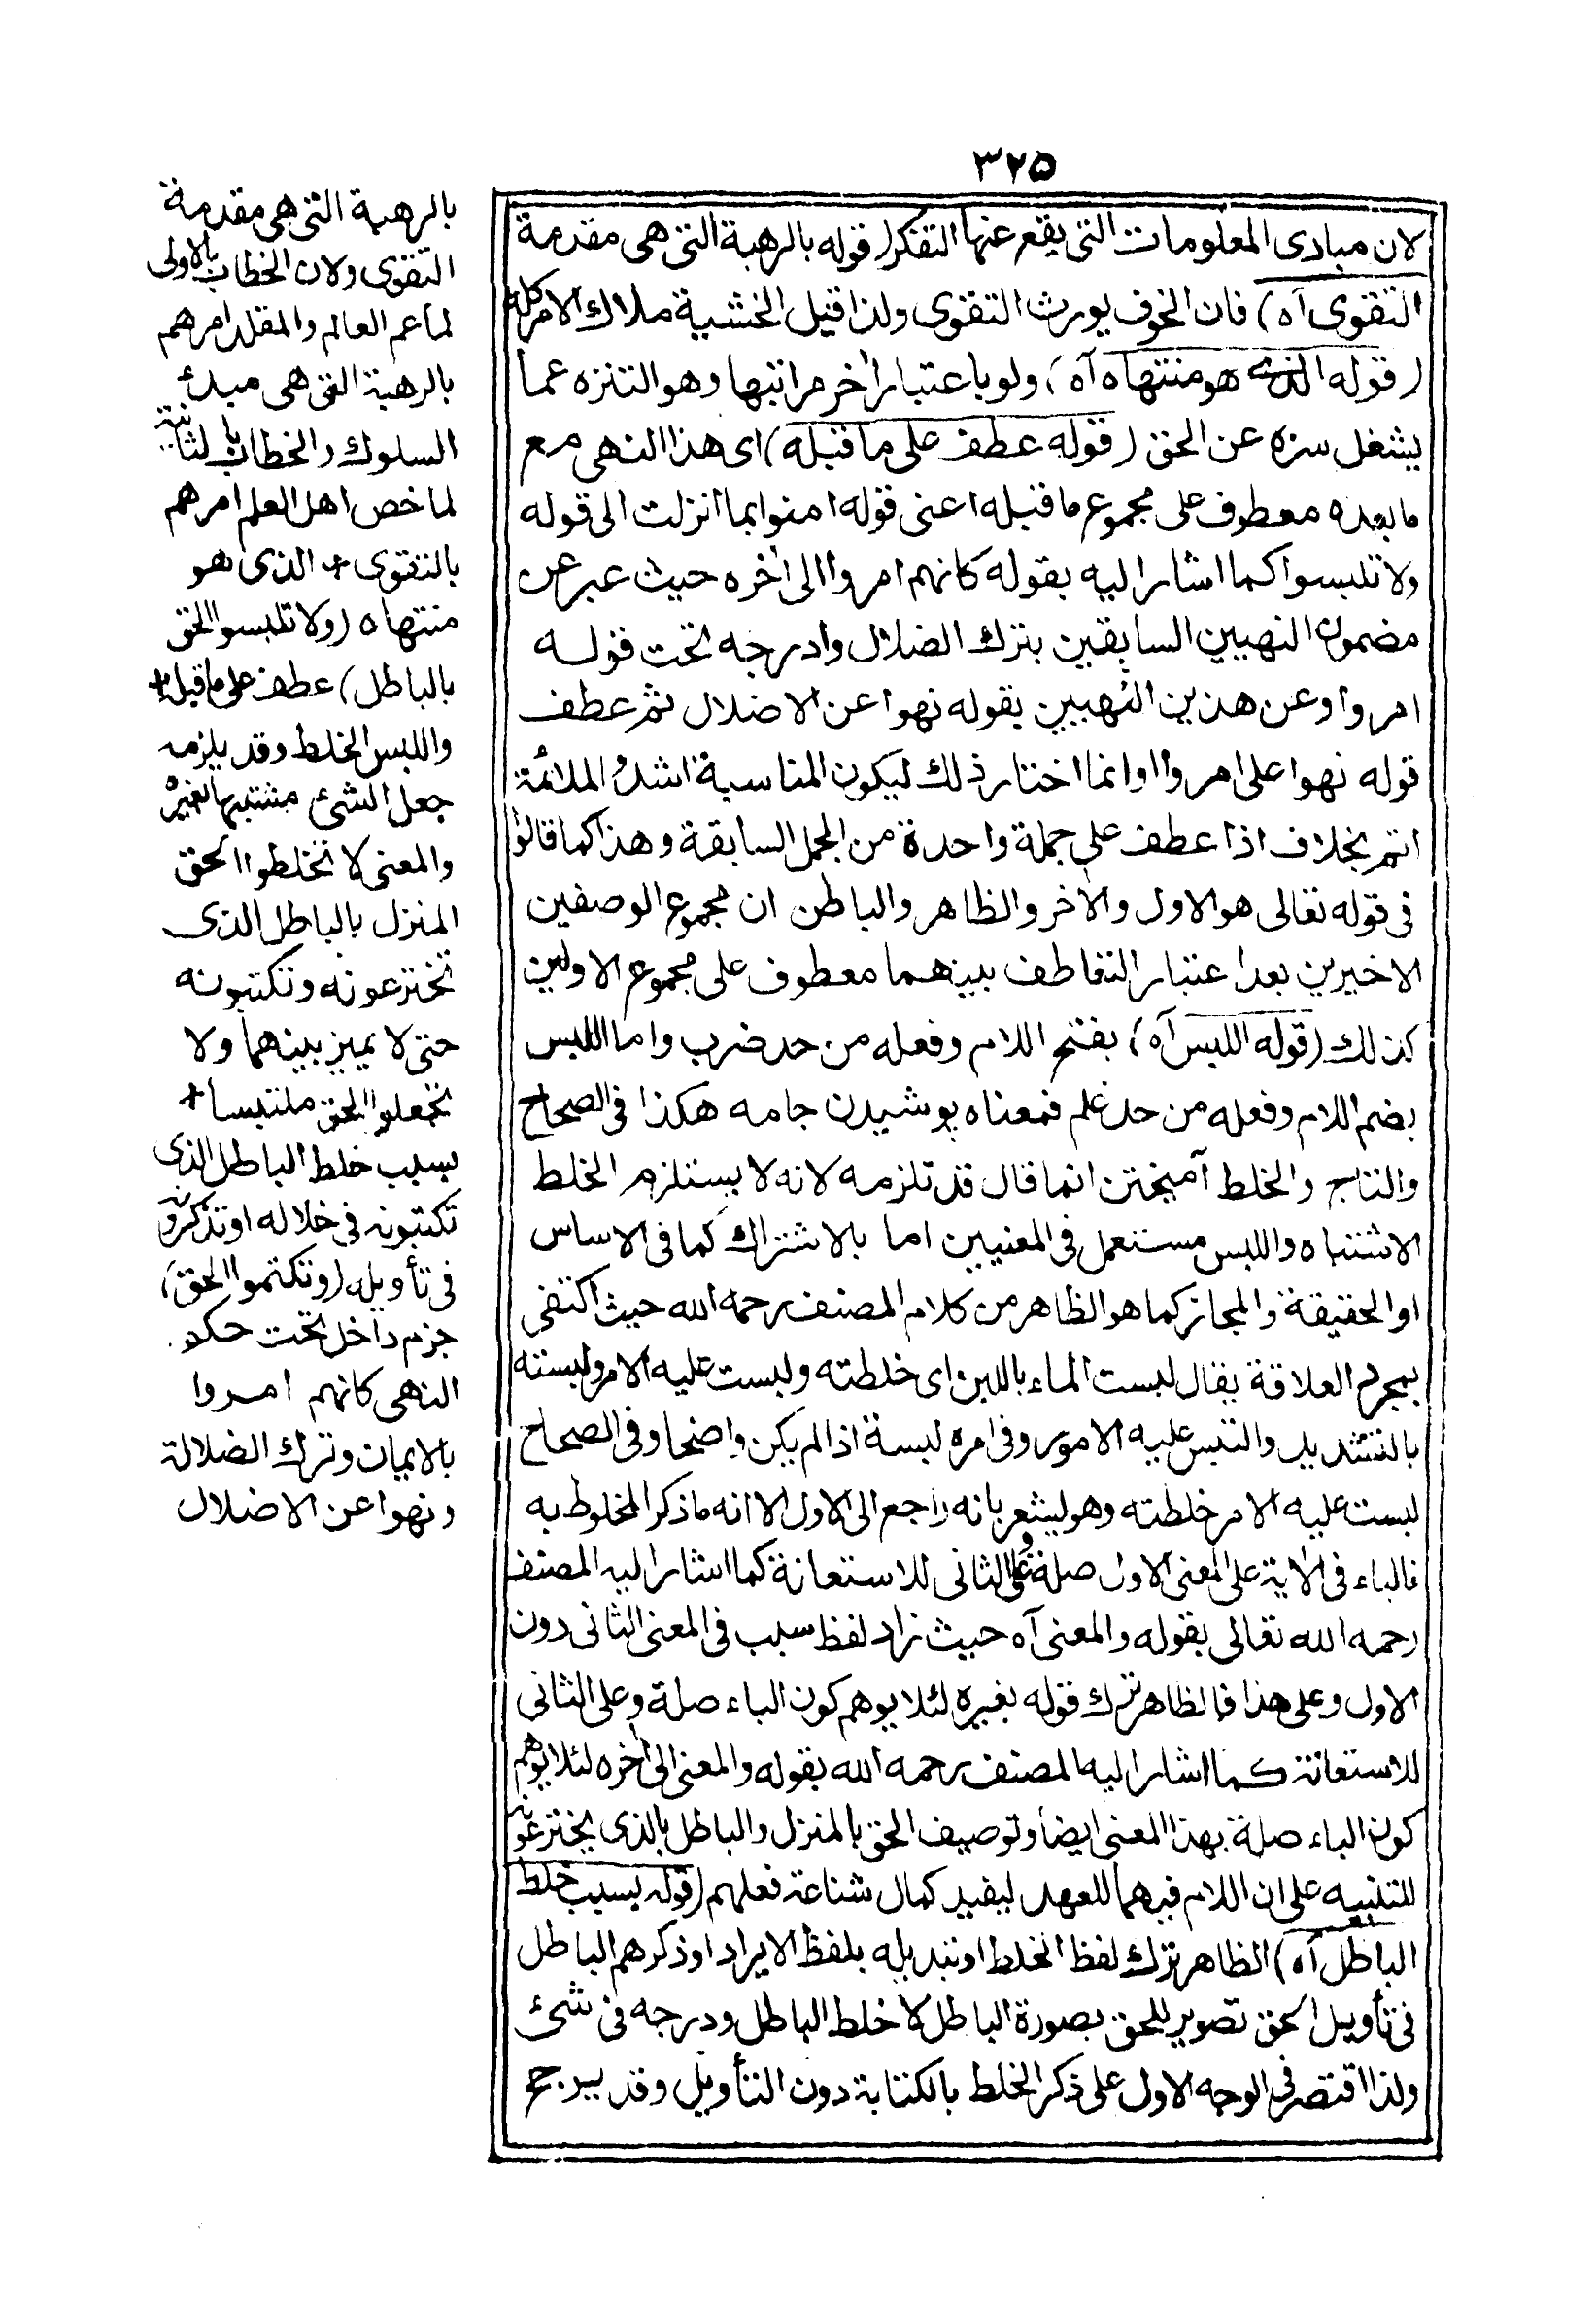 ٣٢٥
لان مبادى المعلومات التى يقع عنها التفكر (قوله بالرهبة التى هى مقدمة
التقوى آه) فان الخوف يورث التقوى ولذا قيل الخشية ملاك الامر كله
(قوله الذى هو منتهاه آه) ولو باعتبار اخر مراتبها وهو التنزه عما
يشغل سره عن الحق (قوله عطف على ما قبله) اى هذا النهى مع
ما بعده معطوف على مجموع ما قبله اعنى قوله امنوا بما انزلت الى قوله
ولا تلبسوا كما اشار اليه بقوله كانهم امروا الى اخره حيث عبر عن
مضمون النهيين السابقين بترك الضلال وادرجه تحت قوله
امروا وعن هذين النهيين بقوله نهوا عن الاضلال ثم عطف
قوله نهوا على امروا وانما اختار ذلك ليكون المناسبة اشد والملائمة
اتم بخلاف اذا عطف على جملة واحدة من الجمل السابقة وهذا كما قالوا
فى قوله تعالى هو الاول والاخر والظاهر والباطن ان مجموع الوصفين
الاخيرين بعد اعتبار التعاطف بينهما معطوف على مجموع الاولين
كذلك (قوله اللبس آه) بفتح اللام وفعله من حد ضرب واما اللبس
بضم اللام وفعله من حد علم فمعناه پوشيدن جامه هكذا فى الصحاح
والتاج والخلط آميختن انما قال قد تلزمه لانه لا يستلزم الخلط
الاشتباه واللبس مستعمل فى المعنيين اما بالاشتراك كما فى الاساس
او الحقيقة والمجاز كما هو الظاهر من كلام المصنف رحمه الله حيث اكتفى
بمجرد العلاقة يقال لبست الماء باللبن اى خلطته ولبست عليه الامر ولبسته
بالتشديد والتبس عليه الامور وفى امره لبسة اذا لم يكن واضحا وفى الصحاح
لبست عليه الامر خلطته وهو ليشعر بانه راجع الى الاول الا انه ما ذكر المخلوط به
فالباء فى الاية على المعنى الاول صلة وعلى الثانى للاستعانة كما اشار اليه المصنف
رحمه الله تعالى بقوله والمعنى آه حيث زاد لفظ سبب فى المعنى الثانى دون
الاول وعلى هذا فالظاهر ترك قوله بغيره لئلا يوهم كون الباء صلة وعلى الثانى
للاستعانة كما اشار اليه المصنف رحمه الله بقوله والمعنى الى اخره لئلا يوهم
كون الباء صلة بهذا المعنى ايضا وتوصيف الحق بالمنزل والباطل بالذى يخترعونه
للتنبيه على ان اللام فيهما للعهد ليفيد كمال شناعة فعلهم (قوله بسبب خلط
الباطل آه) الظاهر ترك لفظ الخلط او تبديله بلفظ الايراد اوذكرهم الباطل
فى تأويل الحق تصوير للحق بصورة الباطل لا خلط الباطل ودرجه فى شئ
ولذا اقتصر فى الوجه الاول على ذكر الخلط بالكتابة دون التأويل وقد يرجح
بالرهبة التى هى مقدمة
التقوى ولان الخطاب بالاولى
لما عم العالم والمقلد امرهم
بالرهبة التى هى مبدئ
السلوك والخطاب بالثانية
لما خص اهل العلم امرهم
بالتقوى + الذى هو
منتهاه (ولا تلبسوا الحق
بالباطل) عطف على ما قبله +
واللبس الخلط وقد يلزمه
جعل الشئ مشتبها بغيره
والمعنى لا تخلطوا الحق
المنزل بالباطل الذى
تخترعونه وتكتبونه
حتى لا يميز بينهما ولا
تجعلوا الحق ملتبسا +
بسبب خلط الباطل الذى
تكتبونه فى خلاله او تذكرونه
فى تأويله (وتكتموا الحق)
جزم داخل تحت حكم
النهى كانهم امروا
بالايمان وترك الضلالة
ونهوا عن الاضلال